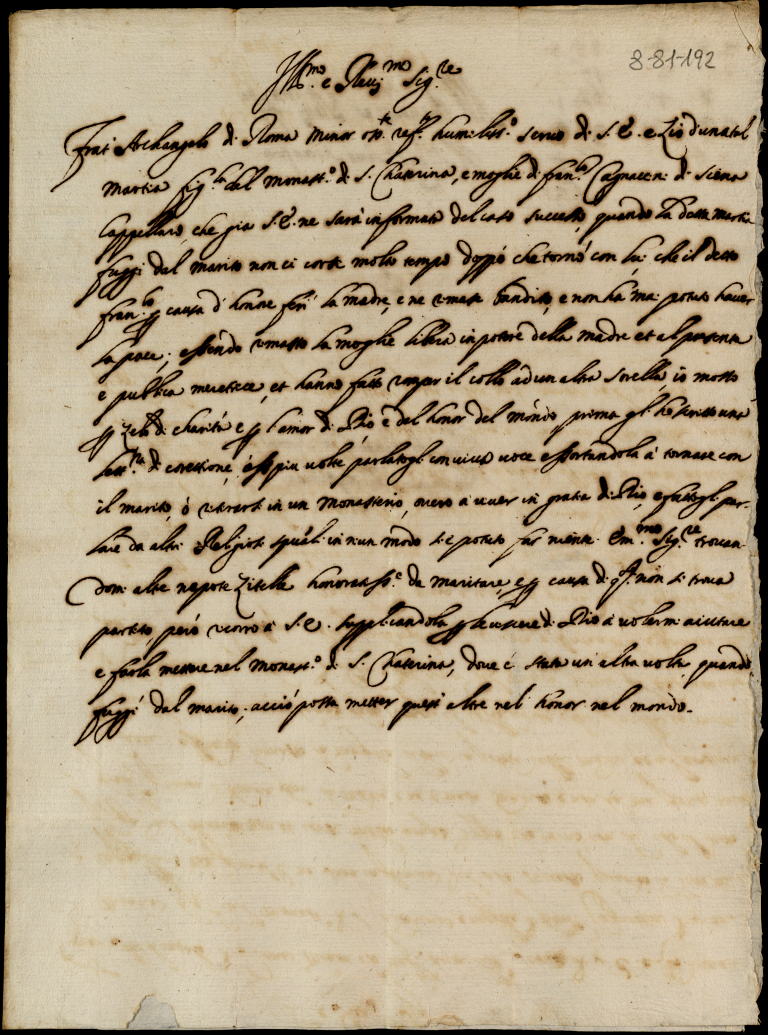 8-81-192
Ill.mo e Rev.mo Sig.re
Frat' Archangelo di Roma minor oss.te ref.o humiliss.o servo di S. E. e Zio d'una tal
Martia fig.la del monast.o di S. Chaterina, e moglie di fran.co Cagnaceni di Siena
Cappellaro, che gia S. E. ne sarà informato del caso successo, quando la detta Martia
fuggì dal marito non ci corse molto tempo doppò che tornò con lui che il detto
fran.co p causa d'honore ferì la madre, e ne rimase bandito, e non hà mai potuto haver
la pace; essendo rimasto la moglie libera in potere della madre et al presente
e publica meretrice, et hanno fatto romper il collo ad un altra sorella, io mosso
p zelo di charità e p l'amor di Dio e del honor del mondo prima gli ho scritto una
lett.ra di coretione, e piu volte parlatogli con viva voce essortandola à tornare con
il marito, ò ritirarsi in un monasterio, overo à viver in gratia di Dio, e fattogli par-
lare da altri Religiosi, quali in niun modo si è potuto far niente. Em.mo Sig.re trovan-
domi altre nepote Zitelle honoratiss.e da maritare, e p causa di q.a non si trova
partito, però ricorro à S. E. supplicandola p le viscere di Dio à volermi aiutare
e farla mettere nel monast.o di S. Chaterina, dove è stata un'altra volta quando
fuggì dal marito, acciò possa metter quest'altre nel honor nel mondo.